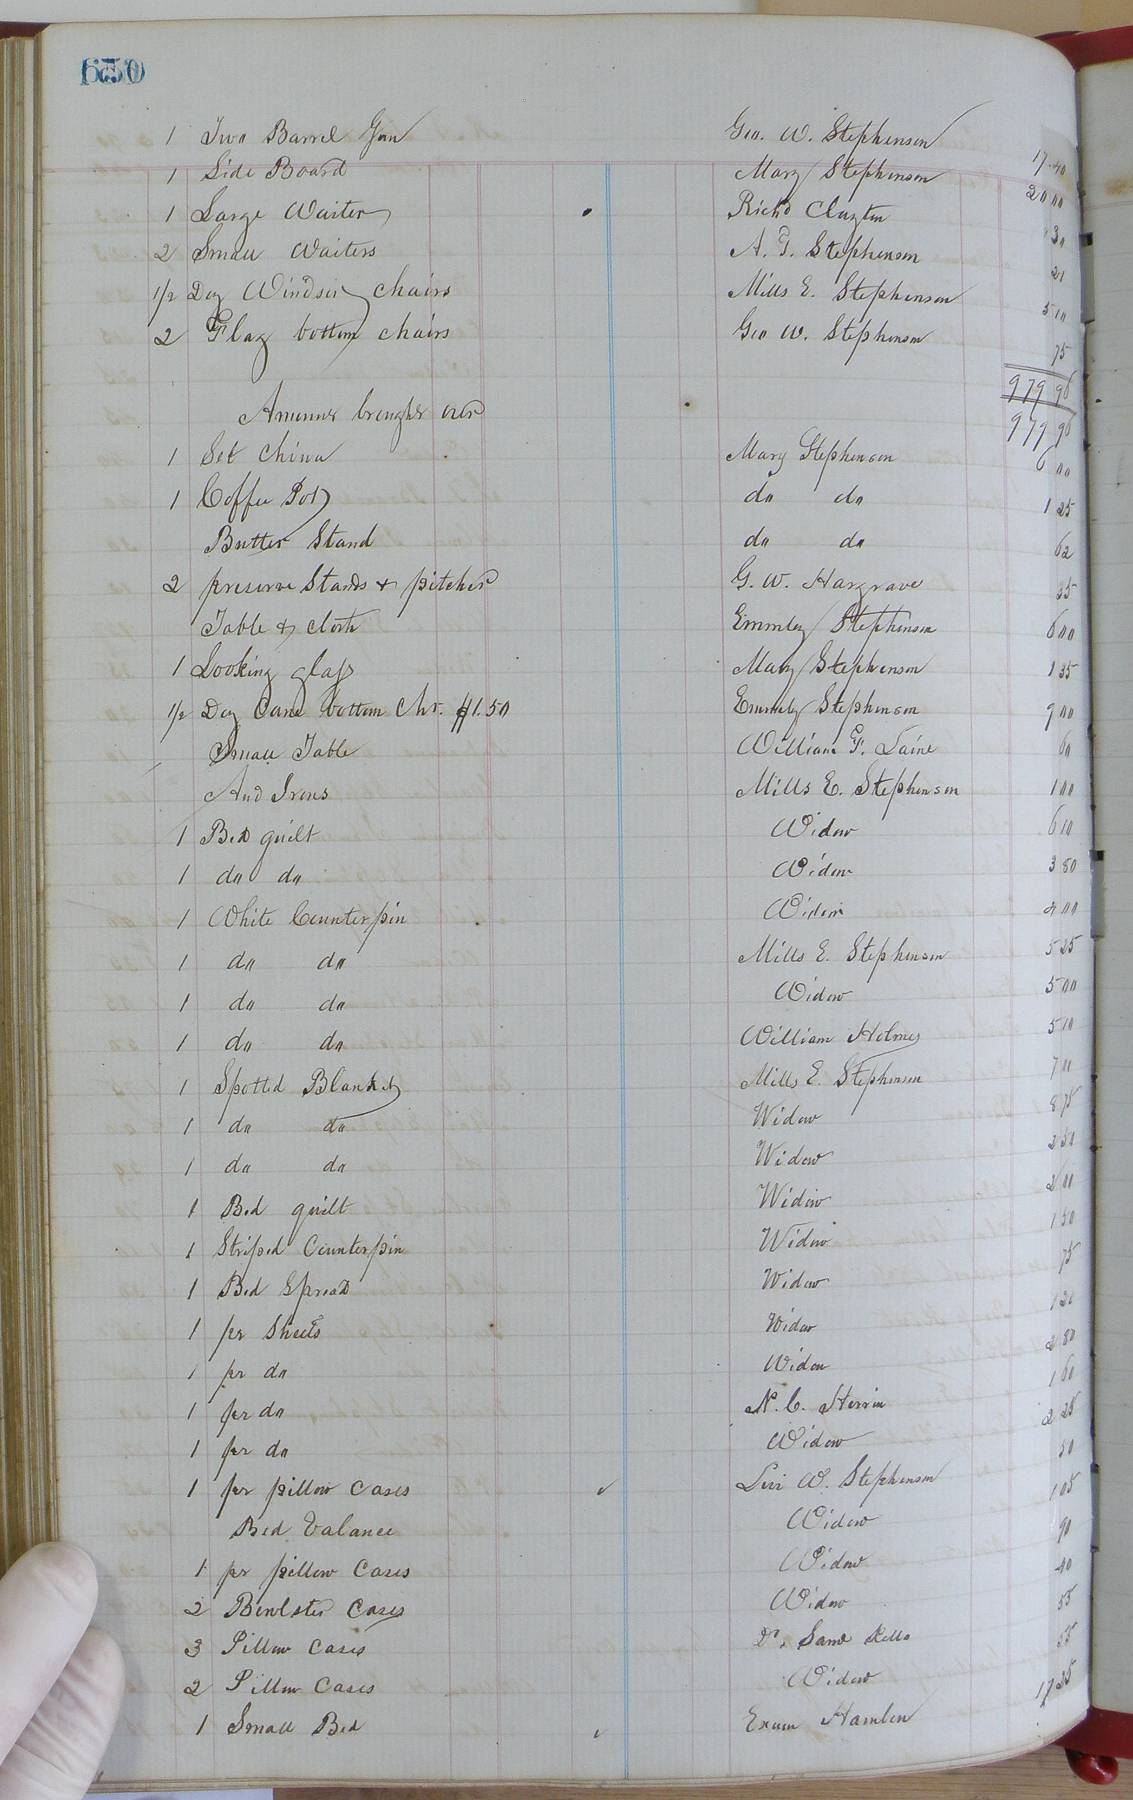 650
1 Two Barrel Gun Geo. W. Stephenson 17.40
1 Side Board Mary Stephenson 20 00
1 Large Waiter Richd Clayton 30
2 Small Waiters A. T. Stephenson 21
1/2 Doz Windsir chairs Mills E. Stephenson 5 10
2 Flag bottom chairs Geo W. Stephenson 75
979 96
Amount brought over 979 96
1 Set China Mary Stephenson 6 00
1 Coffee Pot do do 1 25
Butter Stand do do 62
2 preserve Stands & pitcher G. W. Hargrave 35
Table & cloth Emmley Stephenson 6 00
1 Looking glass Mary Stephenson 1 35
1/2 Doz Cane bottom Chr. $1.50 Emmely Stephenson 9 00
Small Table William F. Laine 60
And Irons Mills E. Stephenson 1 00
1 Bed quilt Widow 6 10
1 do do Widow 3 80
1 White Counterpin Widow 4 00
1 do do Mills E. Stephenson 5 25
1 do do Widow 5 00
1 do do William Holmes 5 10
1 Spotted Blanket Mills E. Stephenson
1 do do Widow 8 75
1 do do Widow 2 50
1 Bed quilt Widow
1 Striped Counterpin Widow 1 50
1 Bed Spread Widow 75
1 pr Sheets Widow
1 pr do Widow 2 80
1 pr do N. C. Herrin 1 60
1 pr do Widow 2 25
1 pr pillow Cases Levi W. Stephenson 50
Bed Valance Widow 1 05
1 pr pillow Cases Widow 90
2 Bowlster Cases Widow 40
3 Pillow Cases Dr. Saml Kello 55
2 Pillow Cases Widow 35
1 Small Bed Exum Hamlin 17 35